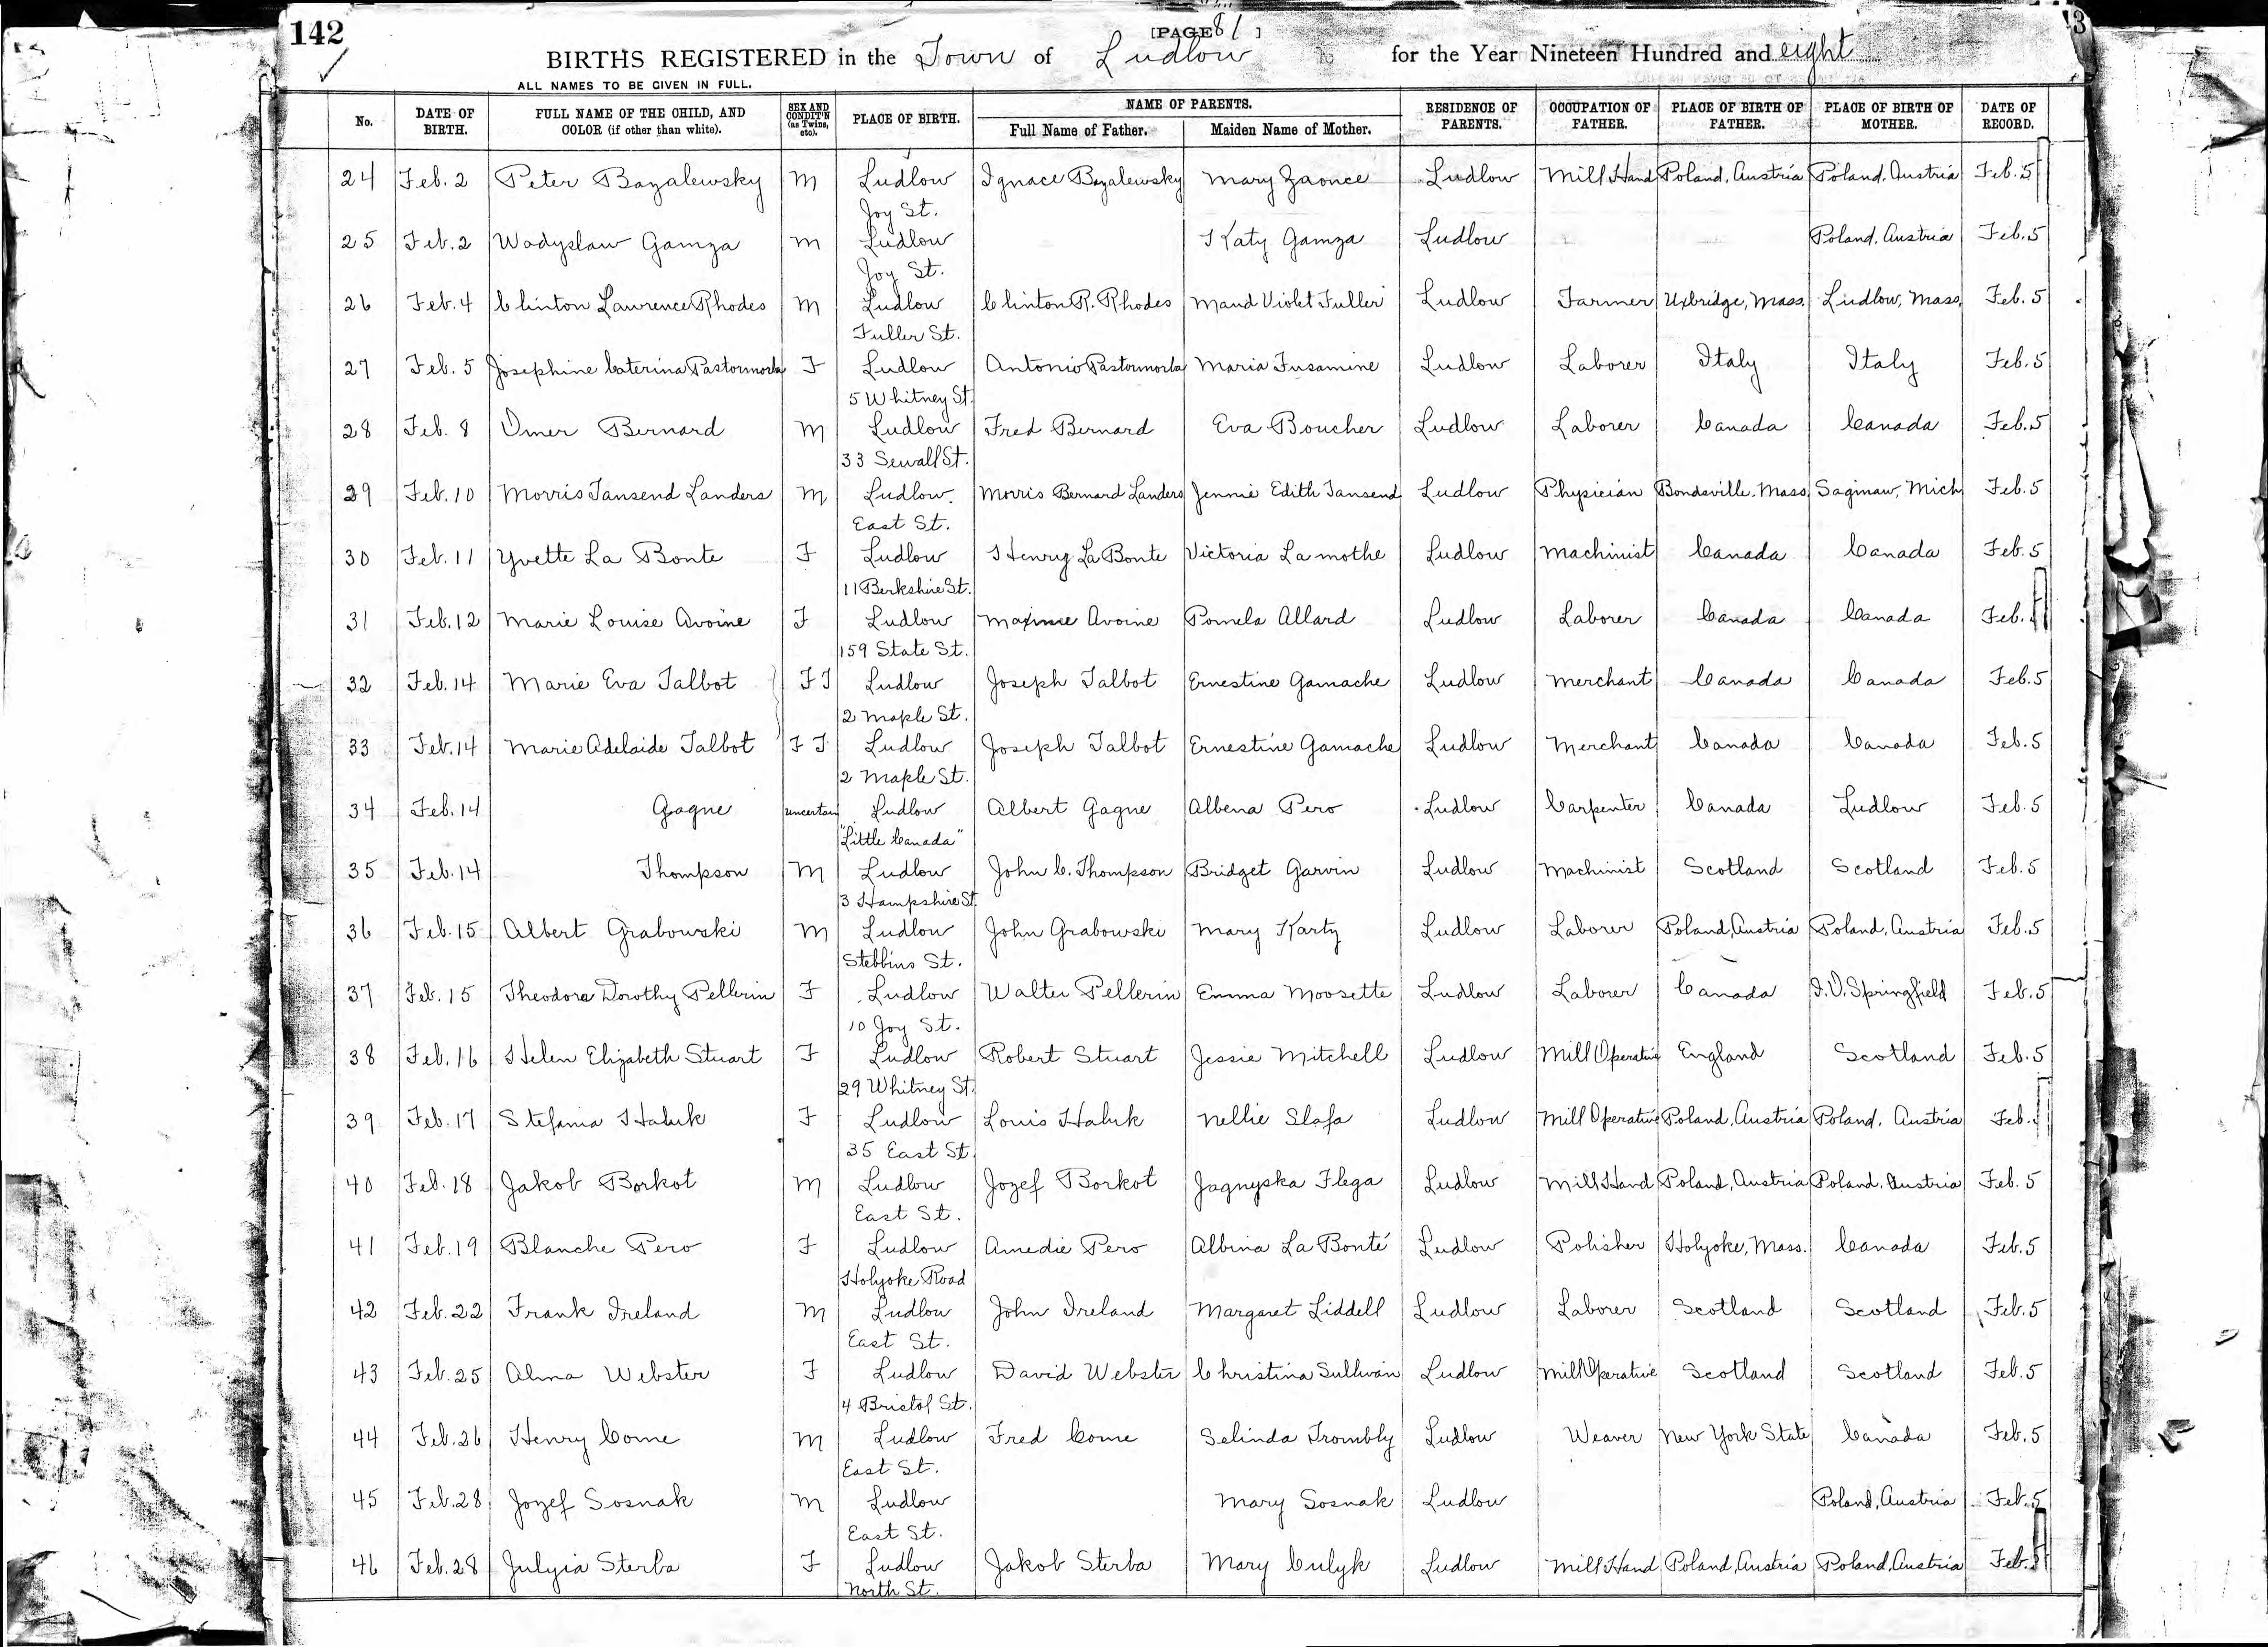 142
[PAGE 81 ]
BIRTHS REGISTERED in the Town of Ludlow for the Year Nineteen Hundred and eight
ALL NAMES TO BE GIVEN IN FULL.
No. DATE OF BIRTH. FULL NAME OF THE CHILD, AND COLOR (if other than white). SEX AND CONDIT'N (as Twins, etc). PLACE OF BIRTH. NAME OF PARENTS. Full Name of Father. Maiden Name of Mother. RESIDENCE OF PARENTS. OCCUPATION OF FATHER. PLACE OF BIRTH OF FATHER. PLACE OF BIRTH OF MOTHER. DATE OF RECORD.
24 Feb. 2 Peter Bazalewsky M Ludlow Ignace Bazalewsky Mary Zaonce Ludlow Mill Hand Poland, Austria Poland, Austria Feb. 5
Joy St.
25 Feb. 2 Wadyslaw Gamza M Ludlow Katy Gamza Ludlow Poland, Austria Feb. 5
Joy St.
26 Feb. 4 Clinton Lawrence Rhodes M Ludlow Clinton R. Rhodes Maud Violet Fuller Ludlow Farmer Uxbridge, Mass. Ludlow, Mass. Feb. 5
Fuller St.
27 Feb. 5 Josephine Caterina F Ludlow Antonio Maria Fusamine Ludlow Laborer Italy Italy Feb. 5
5 Whitney St.
28 Feb. 8 Omer Bernard M Ludlow Fred Bernard Eva Boucher Ludlow Laborer Canada Canada Feb. 5
33 Sewall St.
29 Feb. 10 Morris Tansend Landers M Ludlow Morris Bernard Landers Jennie Edith Tansend Ludlow Physician Bondsville, Mass. Saginaw, Mich Feb. 5
East St.
30 Feb. 11 Yvette La Bonte F Ludlow Henry La Bonte Victoria La mothe Ludlow Machinist Canada Canada Feb. 5
11 Berkshire St.
31 Feb. 12 Marie Louise Avoine F Ludlow Maxime Avoine Pomela Allard Ludlow Laborer Canada Canada Feb.
159 State St.
32 Feb. 14 Marie Eva Talbot F T Ludlow Joseph Talbot Ernestine Gamache Ludlow Merchant Canada Canada Feb. 5
2 Maple St.
33 Feb. 14 Marie Adelaide Talbot F T Ludlow Joseph Talbot Ernestine Gamache Ludlow Merchant Canada Canada Feb. 5
2 Maple St.
34 Feb. 14 Gagne uncertain Ludlow Albert Gagne Albena Pero Ludlow Carpenter Canada Ludlow Feb. 5
"Little Canada"
35 Feb. 14 Thompson M Ludlow John C. Thompson Bridget Garvin Ludlow Machinist Scotland Scotland Feb. 5
3 Hampshire St.
36 Feb. 15 Albert Grabowski M Ludlow John Grabowski Mary Karty Ludlow Laborer Poland, Austria Poland, Austria Feb. 5
Stebbins St.
37 Feb. 15 Theodora Dorothy Pellerin F Ludlow Walter Pellerin Emma Moosette Ludlow Laborer Canada I.O. Springfield Feb. 5
10 Joy St.
38 Feb. 16 Helen Elizabeth Stuart F Ludlow Robert Stuart Jessie Mitchell Ludlow Mill Operative England Scotland Feb. 5
29 Whitney St.
39 Feb. 17 Stefania Habuk F Ludlow Louis Habuk Nellie Slafa Ludlow Mill Operative Poland, Austria Poland, Austria Feb.
35 East St.
40 Feb. 18 Jakob Borkot M Ludlow Jozef Borkot Jagnyska Flega Ludlow Mill Hand Poland, Austria Poland, Austria Feb. 5
East St.
41 Feb. 19 Blanche Pero F Ludlow Amedie Pero Albina La Bonté Ludlow Polisher Holyoke, Mass. Canada Feb. 5
Holyoke Road
42 Feb. 22 Frank Ireland M Ludlow John Ireland Margaret Liddell Ludlow Laborer Scotland Scotland Feb. 5
East St.
43 Feb. 25 Alma Webster F Ludlow David Webster Christina Sullivan Ludlow Mill Operative Scotland Scotland Feb. 5
4 Bristol St.
44 Feb. 26 Henry Come M Ludlow Fred Come Selinda Trombly Ludlow Weaver New York State Canada Feb. 5
East St.
45 Feb. 28 Jozef Sosnak M Ludlow Mary Sosnak Ludlow Poland, Austria Feb. 5
East St.
46 Feb. 28 Julyia Sterba F Ludlow Jakob Sterba Mary Culyk Ludlow Mill Hand Poland, Austria Poland, Austria Feb.
North St.